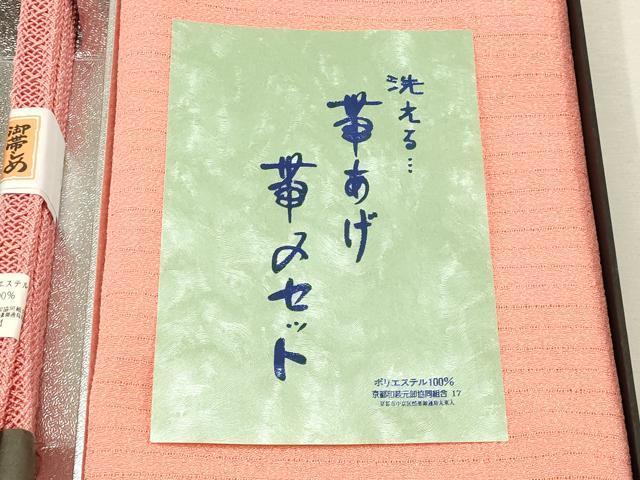 洗える…
帯あげ
帯〆セット
ポリエステル100%
京都和装元卸協同組合 17
御帯じめ
エステル
00%